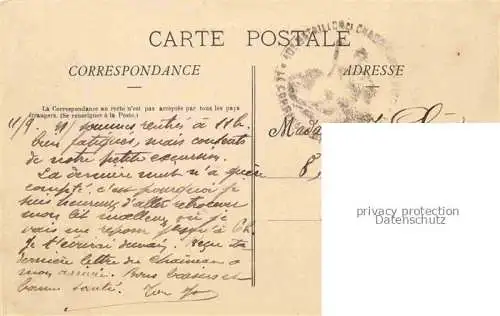 CARTE POSTALE
CORRESPONDANCE
ADRESSE
La Correspondance au recto n'est pas acceptée par tous les pays
étrangers. (Se renseigner à la Poste.)
sommes rentrés à 11h
bien fatigués, mais contents
de notre petite excursion.
La dernière nuit n'a guère
compté, c'est pourquoi je
suis heureux d'aller retrouver
mon lit moelleux où je
vais me reposer jusqu'à 6h.
Je t'écrirai demain. Reçu ta
dernière lettre de
mon arrivée. Bons baisers et
bonne santé. Ton
Mada
8,
privacy protection
Datenschutz